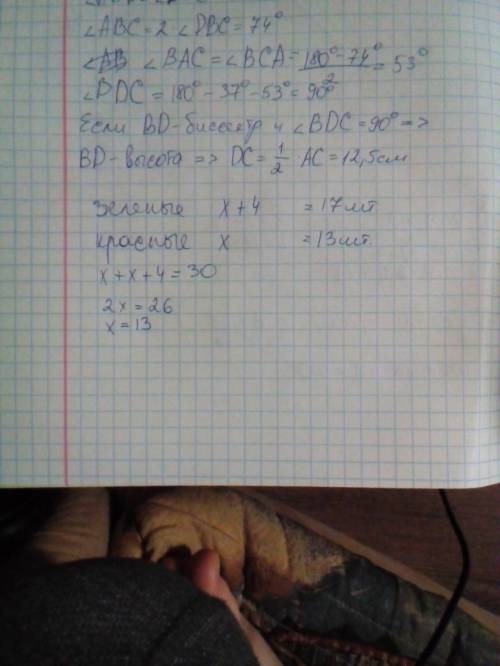 ∠ABC = 2 ∠DBC = 74°
∠AB ∠BAC = ∠BCA = (180° - 74°)/2 = 53°
∠BDC = 180° - 37° - 53° = 90°
Если BD - биссектр и ∠BDC = 90° =>
BD - высота => DC = 1/2 · AC = 12,5 см
зеленые x + 4 = 17 шт.
красные x = 13 шт.
x + x + 4 = 30
2x = 26
x = 13